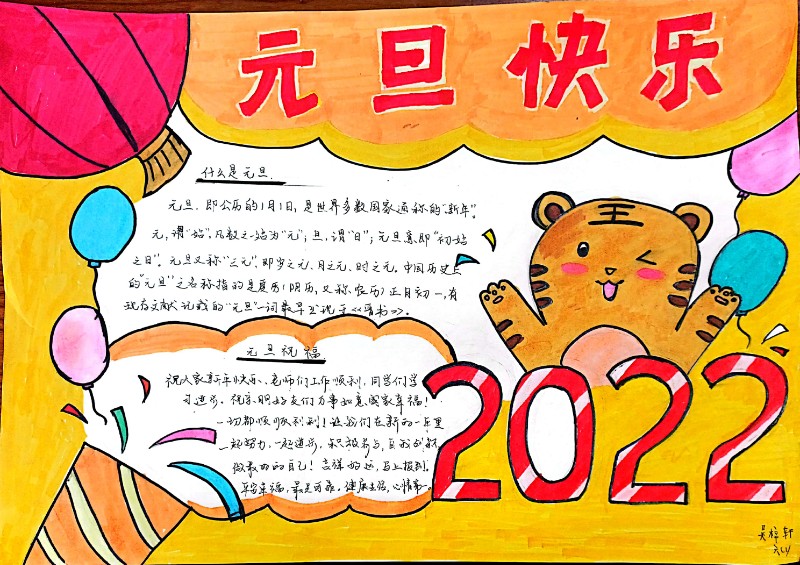 元旦快乐
什么是元旦
元旦,即公历的1月1日,是世界多数国家通称的“新年”。
元,谓“始”,凡数之始为“元”;旦,谓“日”;元旦意即“初始
之日”。元旦又称“三元”,即岁之元、月之元、时之元。中国历史上
的“元旦”之名称指的是夏历(阴历,又称农历)正月初一,有
现存文献记载的“元旦”一词最早出现于《晋书》。
元旦祝福
祝大家新年快乐、老师们工作顺利,同学们学
习进步。祝亲朋好友们万事如意阖家幸福!
一切都顺顺利利!让我们在新的一年里
一起努力,一起进步,积极参与,
做最好的自己!吉祥好运,马上报到。
平安幸福,最是可靠。健康
王
2022
吴梓轩